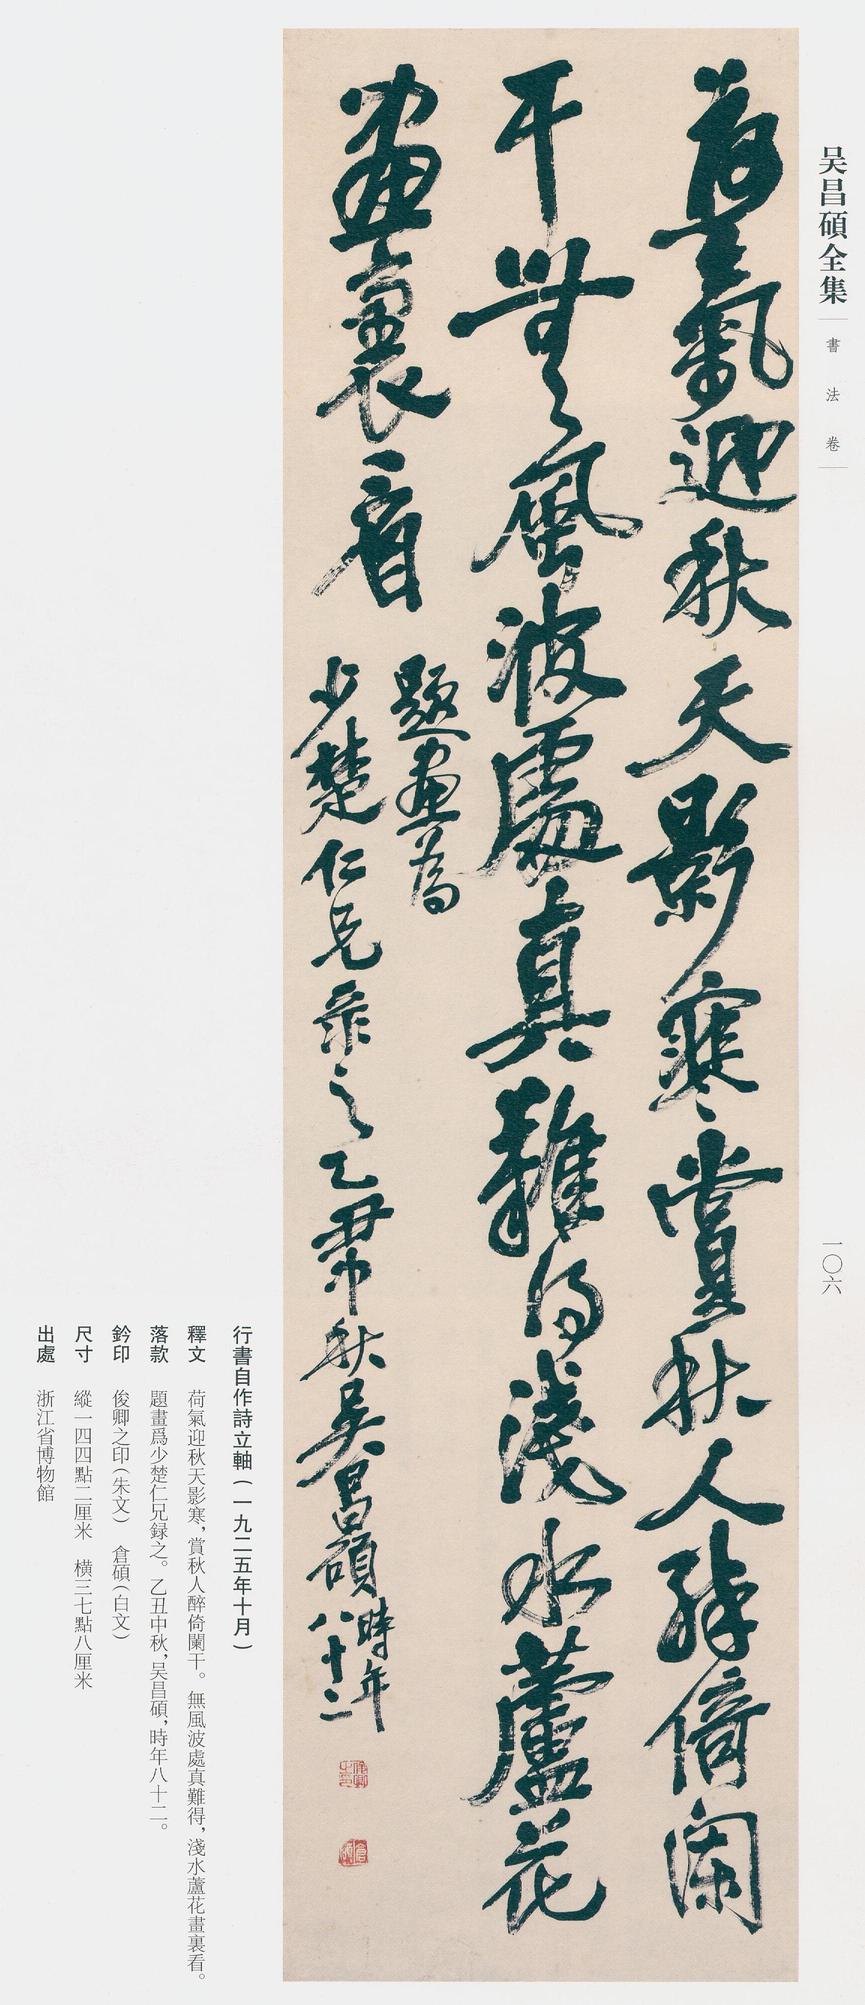 吴昌碩全集
書法卷
一〇六
荷氣迎秋天影寒賞秋人醉倚闌
干無風波處真難得淺水蘆花
畫裏看
題畫為
少楚仁兄录之乙丑中秋吴昌碩時年
八十二
俊卿之印
倉碩
行書自作詩立軸(一九二五年十月)
釋文 荷氣迎秋天影寒,賞秋人醉倚闌干。無風波處真難得,淺水蘆花畫裏看。
落款 題畫爲少楚仁兄録之。乙丑中秋,吴昌碩,時年八十二。
鈐印 俊卿之印(朱文) 倉碩(白文)
尺寸 縱一四四點二厘米 横三七點八厘米
出處 浙江省博物館